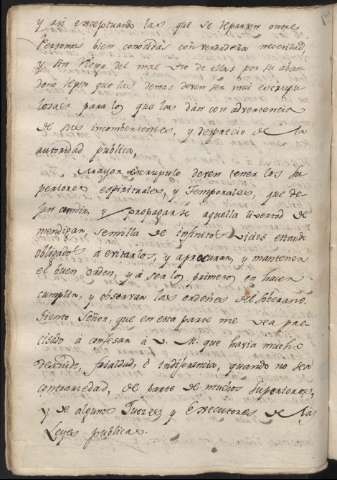 y asi exceptuando las que se reparten entre
Personas bien conocidas con verdadera necesidad,
y sin riesgo del mal uso de ellas por su aban
dono se que las demas deven ser mui escrupu
losas para los que las dàn con advertencia
de sus inconvenientes, y desprecio de la
autoridad publica,
Mayor escrupulo deven tener los Su
periores espirituales, y Temporales, que de
jan cundir, y propagarse aquella livertad de
mendigar, semilla de infinitos vicios estando
obligados à evitarlos, y à procurar, y mantener
el buen orden, y à ser los primeros en hacer
cumplir, y observar las ordenes del soberano
Siento Señor, que en esta parte me sea pre
ciso à confesar à V. M. que havia mucho
descuido, frialdad, è indiferencia, quando no sea
contrariedad, de parte de muchos superiores,
y de algunos Jueces, y Executores de las
Leyes publicas.